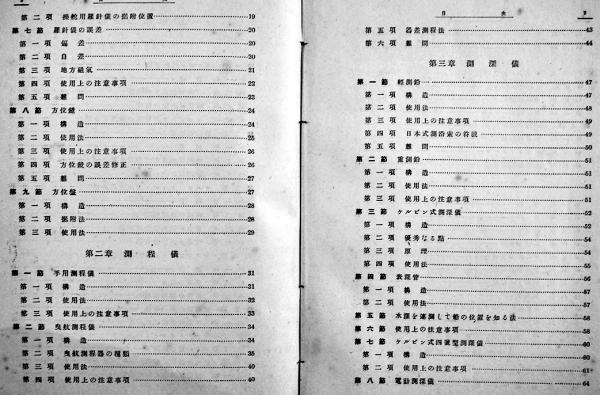 第二項 操舵用羅針儀の据附位置 19
第七節 羅針儀の誤差 20
第一項 偏差 20
第二項 自差 20
第三項 地方磁氣 21
第四項 使用上の注意事項 22
第五項 雜問 23
第八節 方位鏡 24
第一項 構造 24
第二項 使用法 25
第三項 使用上の注意事項 26
第四項 方位鏡の誤差修正 26
第五項 雜問 27
第九節 方位盤 27
第一項 構造 28
第二項 据附法 28
第三項 使用法 29
第二章 測程儀
第一節 手用測程儀 31
第一項 構造 31
第二項 使用法 32
第三項 使用上の注意事項 33
第二節 曳航測程儀 34
第一項 構造 34
第二項 曳航測程器の種類 35
第三項 使用法 40
第四項 使用上の注意事項 40
目次
第五項 器差測程法 43
第六項 雜問 44
第三章 測深儀
第一節 輕測鉛 47
第一項 構造 47
第二項 使用法 48
第三項 使用上の注意事項 49
第四項 日本式測沿索の符號 49
第五項 雜問 50
第二節 重測鉛 51
第一項 構造 51
第二項 使用法 51
第三項 使用上の注意事項 51
第三節 ケルビン式測深儀 52
第一項 構造 52
第二項 優秀なる點 54
第三項 原理 54
第四項 使用法 55
第四節 表深管 56
第一項 構造 57
第二項 使用法 57
第五節 水深を連測して船の位置を知る法 58
第六節 使用上の注意事項 58
第七節 ケルビン式四號型測深儀 60
第一項 構造 60
第二項 使用上の注意事項 61
第八節 電動測深儀 64